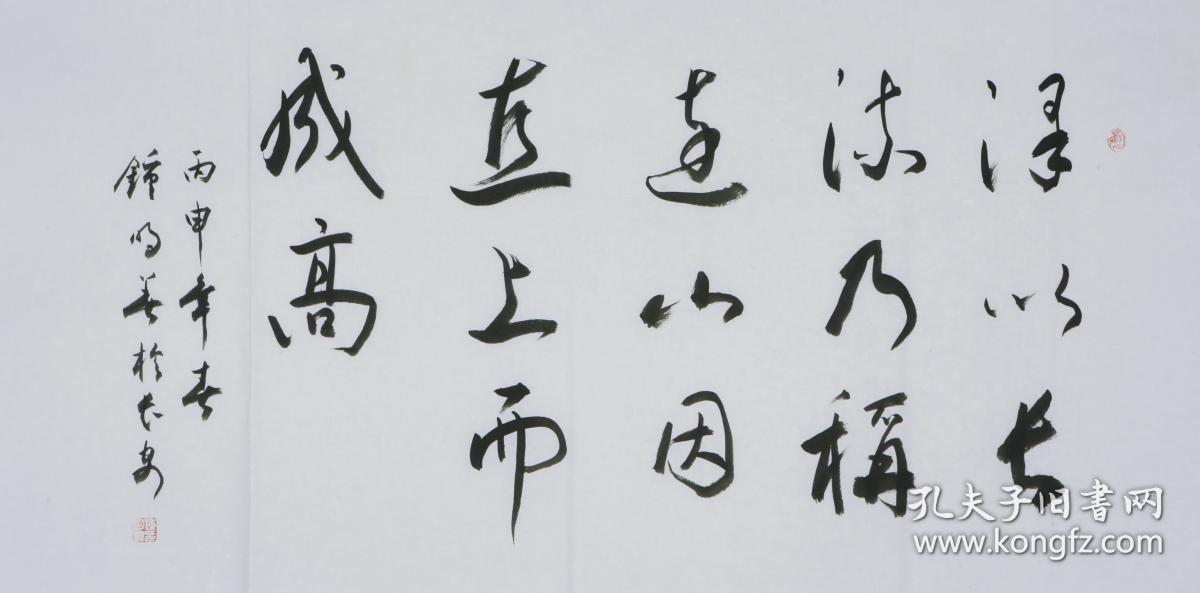 澤以長
流乃稱
遠山因
直上而
成高
丙申年春
鍾明善於長安
孔夫子旧书网
www.kongfz.com